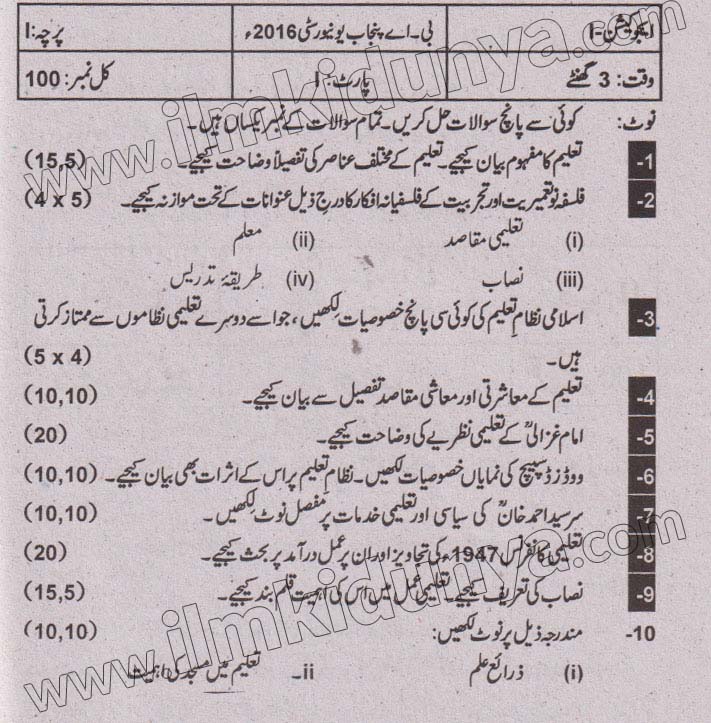 ایجوکیشن-I بی۔اے پنجاب یونیورسٹی 2016ء پرچہ: I
وقت: 3 گھنٹے پارٹ: I کل نمبر: 100
نوٹ: کوئی سے پانچ سوالات حل کریں۔ تمام سوالات کے نمبر یکساں ہیں۔
-1 تعلیم کا مفہوم بیان کیجیے۔ تعلیم کے مختلف عناصر کی تفصیلاً وضاحت کیجیے۔ (15,5)
-2 فلسفہ نو تعمیریت اور تجربیت کے فلسفیانہ افکار کا درج ذیل عنوانات کے تحت موازنہ کیجیے۔ (4 x 5)
(i) تعلیمی مقاصد (ii) معلم
(iii) نصاب (iv) طریقۂ تدریس
-3 اسلامی نظامِ تعلیم کی کوئی سی پانچ خصوصیات لکھیں، جو اسے دوسرے تعلیمی نظاموں سے ممتاز کرتی
ہیں۔ (5 x 4)
-4 تعلیم کے معاشرتی اور معاشی مقاصد تفصیل سے بیان کیجیے۔ (10,10)
-5 امام غزالیؒ کے تعلیمی نظریے کی وضاحت کیجیے۔ (20)
-6 ووڈز ڈسپیچ کی نمایاں خصوصیات لکھیں۔ نظامِ تعلیم پر اس کے اثرات بھی بیان کیجیے۔ (10,10)
-7 سرسید احمد خانؒ کی سیاسی اور تعلیمی خدمات پر مفصل نوٹ لکھیں۔ (10,10)
-8 تعلیمی کانفرنس 1947ء کی تجاویز اور ان پر عمل درآمد پر بحث کیجیے۔ (20)
-9 نصاب کی تعریف کیجیے۔ تعلیمی عمل میں اس کی اہمیت قلم بند کیجیے۔ (15,5)
-10 مندرجہ ذیل پر نوٹ لکھیں: (10,10)
(i) ذرائع علم ii۔ تعلیم میں مسجد کی اہمیت
www.ilmkidunya.com
www.ilmkidunya.com
www.ilmkidunya.com